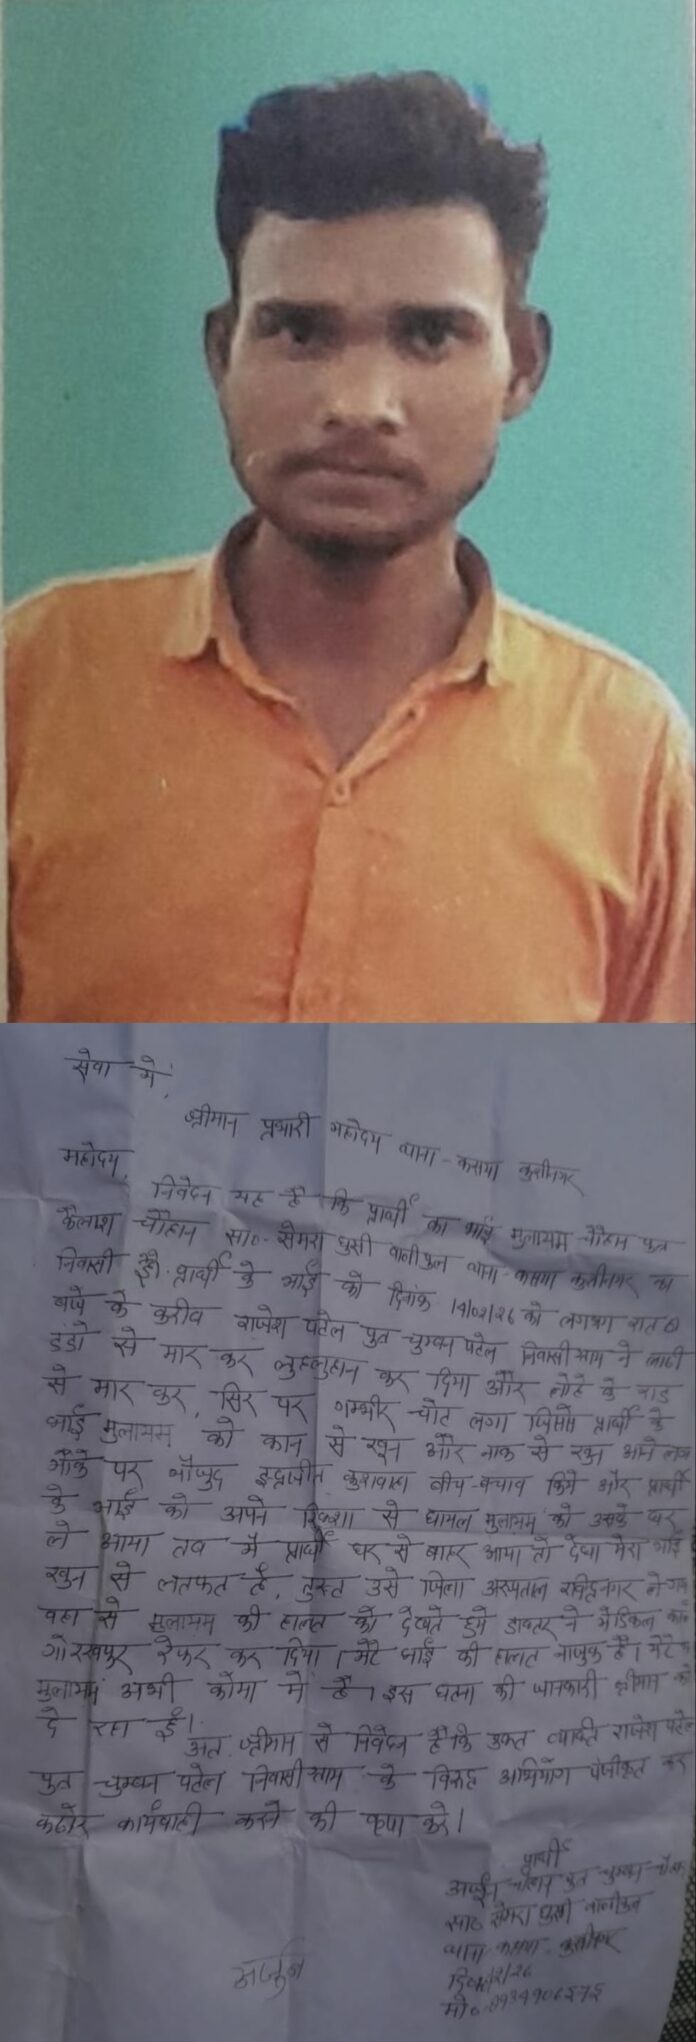 सेवा में,
श्रीमान प्रभारी महोदय थाना - कसया कुशीनगर
महोदय,
निवेदन यह है कि प्रार्थी का भाई मुलायम चौहान पुत्र
कैलाश चौहान सा०- सेमरा घुसी थाना-कसया कुशीनगर का
निवासी हूँ। प्रार्थी के भाई को दिनांक को लगभग रात
बजे के करीब राजेश पटेल पुत्र चुम्बन पटेल निवासी ग्राम ने लाठी
डंडो से मार कर लुहलुहान कर दिया और लोहे के राड
से मार कर, सिर पर गम्भीर चोट लगा जिससे प्रार्थी के
भाई मुलायम को कान से खून और नाक से खून आने लगा
मौके पर मौजुद इन्द्रजीत कुशवाहा बीच-बचाव किये और प्रार्थी
के भाई को अपने रिक्शा से घायल मुलायम को उसके घर
ले आया तब मैं प्रार्थी घर से बाहर आया तो देखा मेरा भाई
खुन से लतफत है, तुरन्त उसे जिला अस्पताल रविन्द्रनगर ले गया
वहा से मुलायम की हालत को देखते हुये डाक्टर ने मेडिकल
गोरखपुर रेफर कर दिया। मेरे भाई की हालत नाजुक है। मेरे
मुलायम अभी कोमा में है। इस घटना की जानकारी श्रीमान को
दे रहा हूँ।
अतः श्रीमान से निवेदन है कि उक्त व्यक्ति राजेश पटेल
पुत्र चुम्बन पटेल निवासी ग्राम के विरुद्ध अभियोग पंजीकृत कर
कठोर कार्यवाही करने की कृपा करे।
प्रार्थी
अर्जुन चौहान पुत्र
सा० सेमरा घुसी
थाना-कसया-कुशीनगर
मो०
अर्जुन